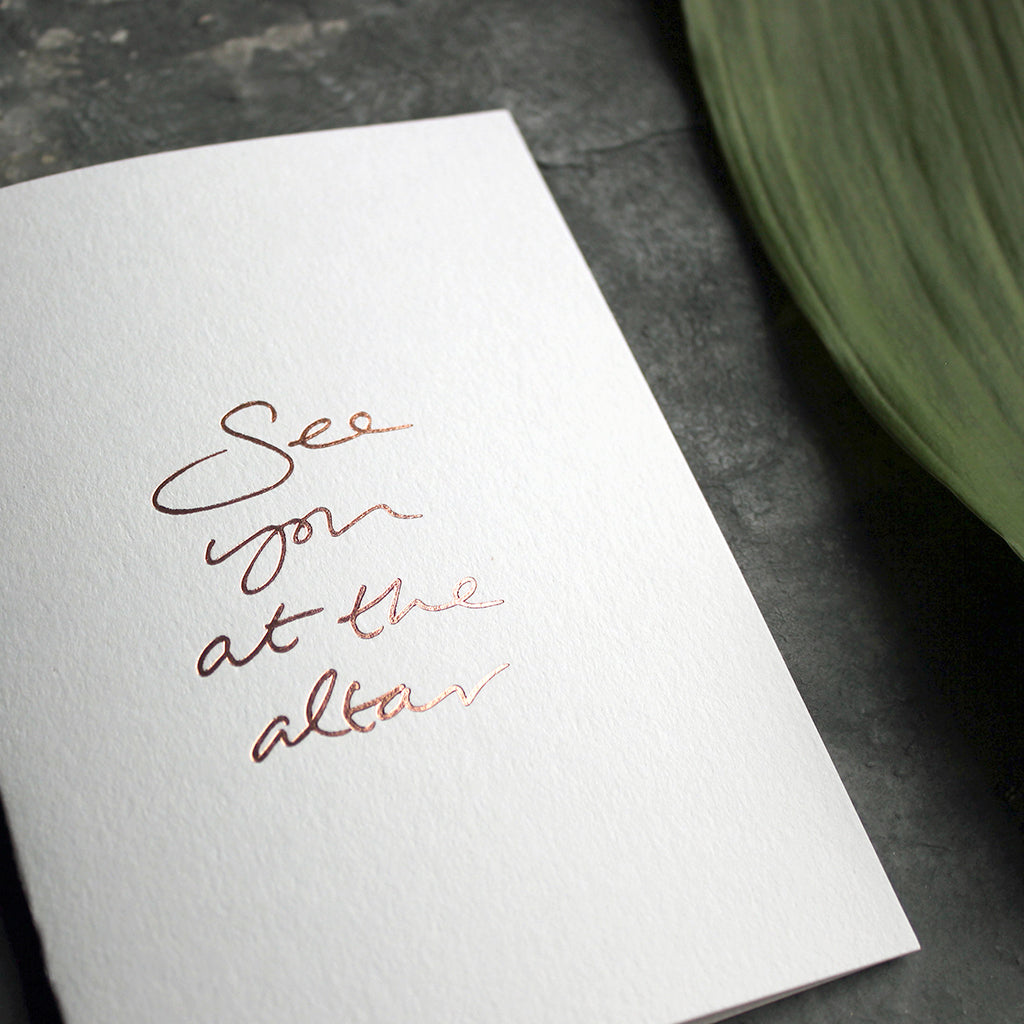 See
you
at the
altar